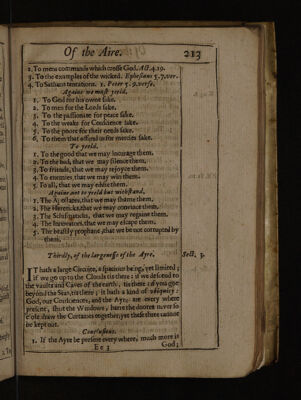 Of the Aire. 213
2. To mens commands which crosse God. Act. 4.19.
3. To the examples of the wicked. Ephesians 5.7.ver.
4. To Sathans tentations. 1. Peter 5.9.verse.
Againe we must yeeld.
1. To God for his owne sake.
2. To men for the Lords sake.
3. To the passionate for peace sake.
4. To the weake for Conscience sake.
5. To the poore for their needs sake.
6. To them that offend us for mercies sake.
To yeeld.
1. To the good that we may incourage them.
2. To the bad, that we may silence them.
3. To friends, that we may rejoyce them.
4. To enemies, that we may win them.
5. To all, that we may edifie them.
Againe not to yeeld but withstand.
1. The Apostates, that we may shame them.
2. The Hereticks, that we may convince them.
3. The Schismaticks, that we may regaine them.
4. The Inchanters, that we may escape them.
5. The beastly prophane, that we be not corrupted by
them.
Thirdly, of the largenesse of the Ayre. Sect. 3.
IT hath a large Circuite, a spacious being, yet limited;
if we go up to the Clouds tis there: if we descend to
the vaults and Caves of the earth, tis there: if you goe
beyond the Seas, tis there; it hath a kind of ubiquity:
God, our Consciences, and the Ayre, are every where
present, shut the Windowes, barre the doores never so
close, draw the Curtaines together, yet these three cannot
be kept out.
Conclusions.
1. If the Ayre be present every where, much more is
Ee 3 God;